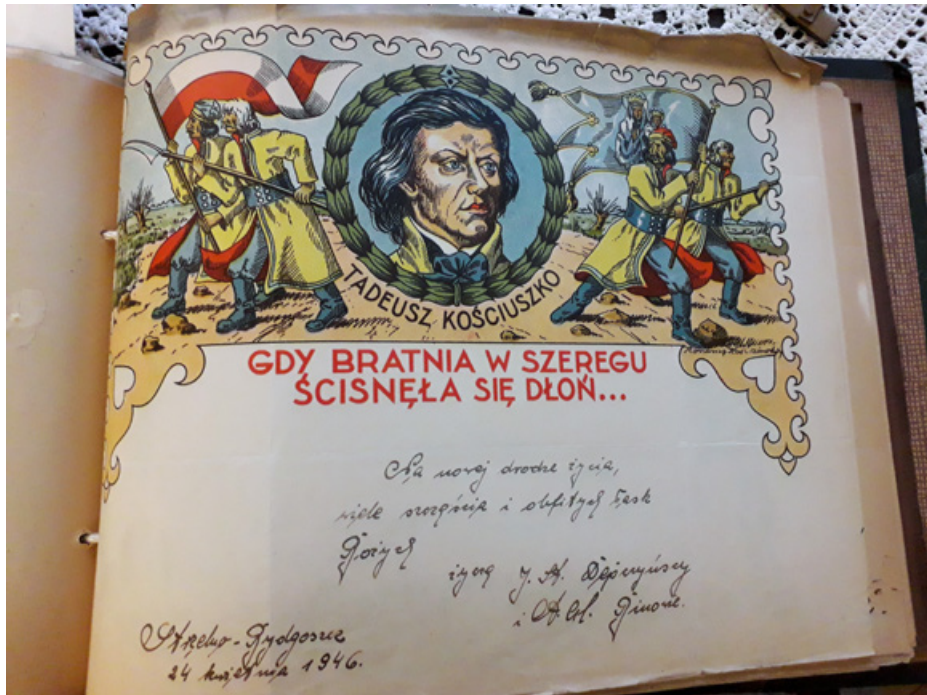 TADEUSZ KOŚCIUSZKO
GDY BRATNIA W SZEREGU
ŚCISNĘŁA SIĘ DŁOŃ...
Na nowej drodze życia,
wiele szczęścia i obfitych łask
Bożych
życzą J. St.
i
Strzelno - Bydgoszcz
24 kwietnia 1946.